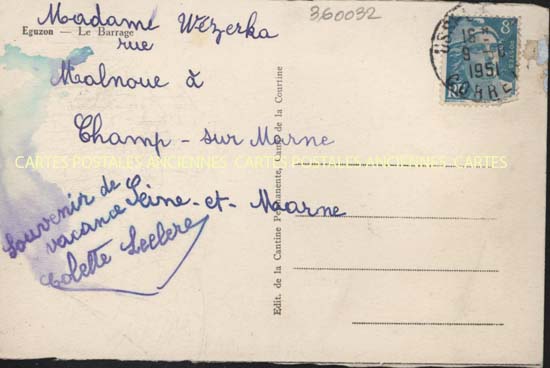 Madame Wezerka
Eguzon — Le Barrage
rue
Malnoue à
Champ-sur Marne
Seine-et-Maarne
Souvenir de
vacance
Colette Leclere
360032
16H
9 -8
1951
CORRE
8F
Edit. de la Cantine Permanente, Camp de la Courtine
CARTES POSTALES ANCIENNES CARTES POSTALES ANCIENNES CARTES